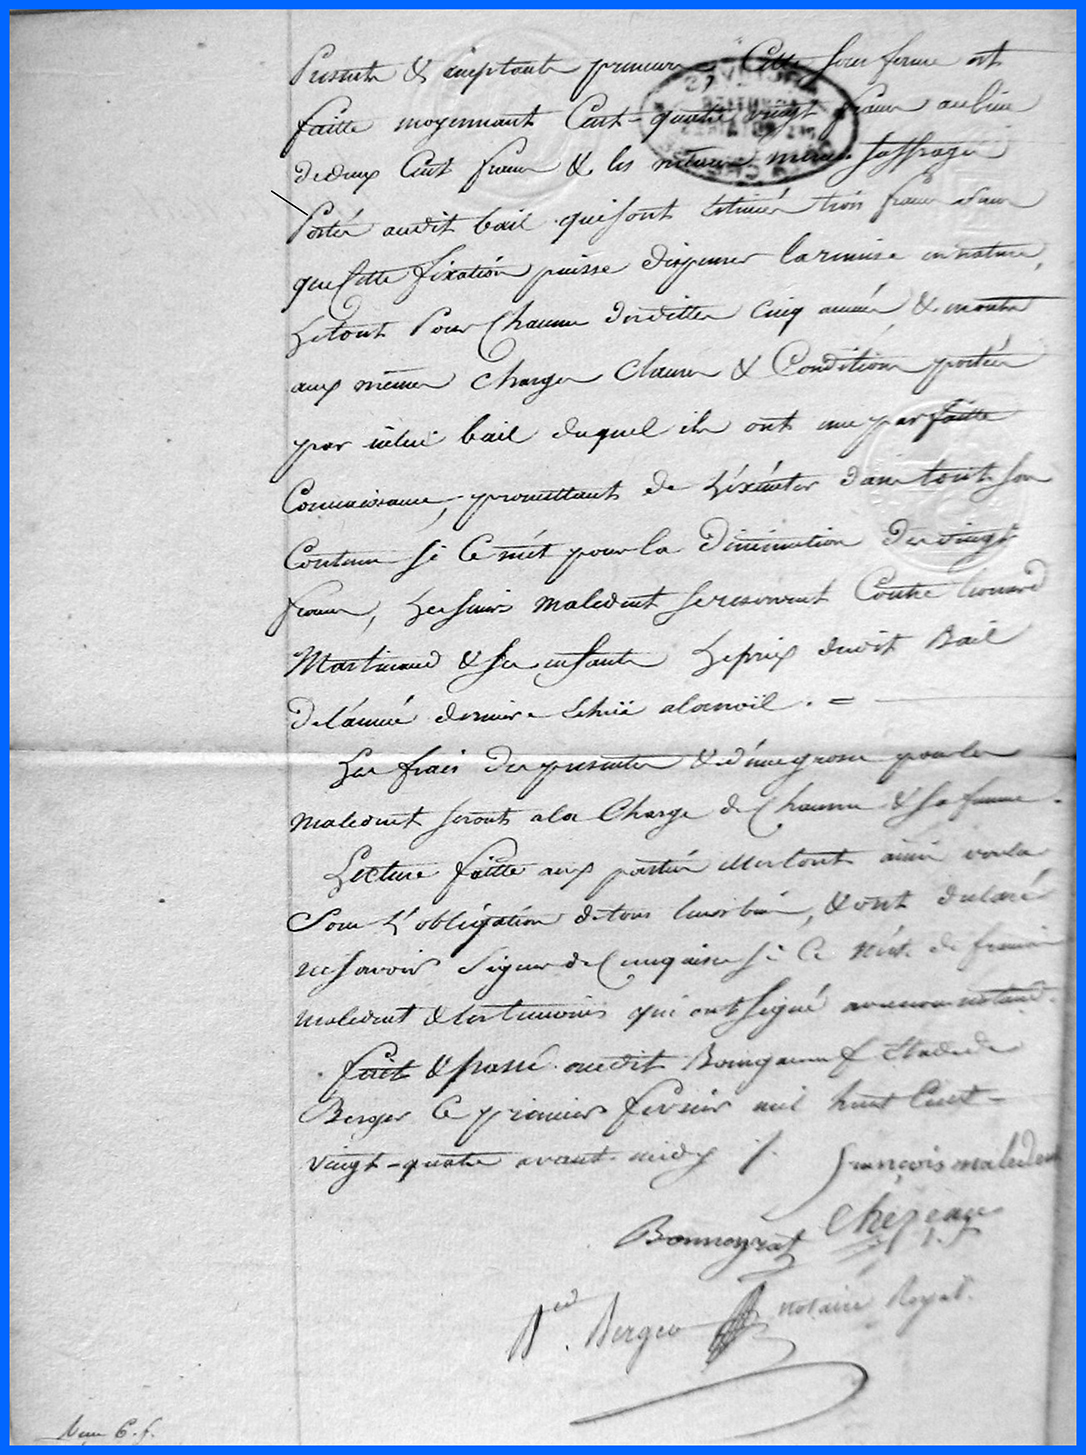 Presente & acceptante preneurs Cette sous ferme est
faitte moyennant Cent-quatre vingt francs au lieu
de deux Cent francs & les mêmes menus suffrages
Portés audit bail qui sont estimés trois francs sans
que Cette fixation puisse dispenser la remise en nature,
Le tout Pour Chacune desdittes cinq années, & en outre
aux mêmes charges clauses & Conditions portées
par icelui bail duquel ils ont une parfaitte
Connaissance, promettant de L'éxécuter dans tout son
Contenu si Ce n'est pour la diminution des vingt
francs, Lesdits maledent se reservent Contre Leonard
Martinaud & ses enfants Le prix dudit Bail
de L'année derniere échüe a la noël. =
Les frais des presentes & d'une grosse pour les
maledent seronts a la Charge de Chaume & sa femme.
Lecture faitte aux parties elles l'ont ainsi voulu
Sous L'obligation de tous leurs biens, & ont declaré
ne savoir signer de Ce enquises si Ce n'est de françois
maledent & les temoins qui ont signé avec nous notaire.
fait & passé audit Bourganeuf Etude de
Berger Ce premier fevrier mil huit Cent-
vingt-quatre avant midy /.
françois maledent
Bonneyrat
Berger notaire Royal.